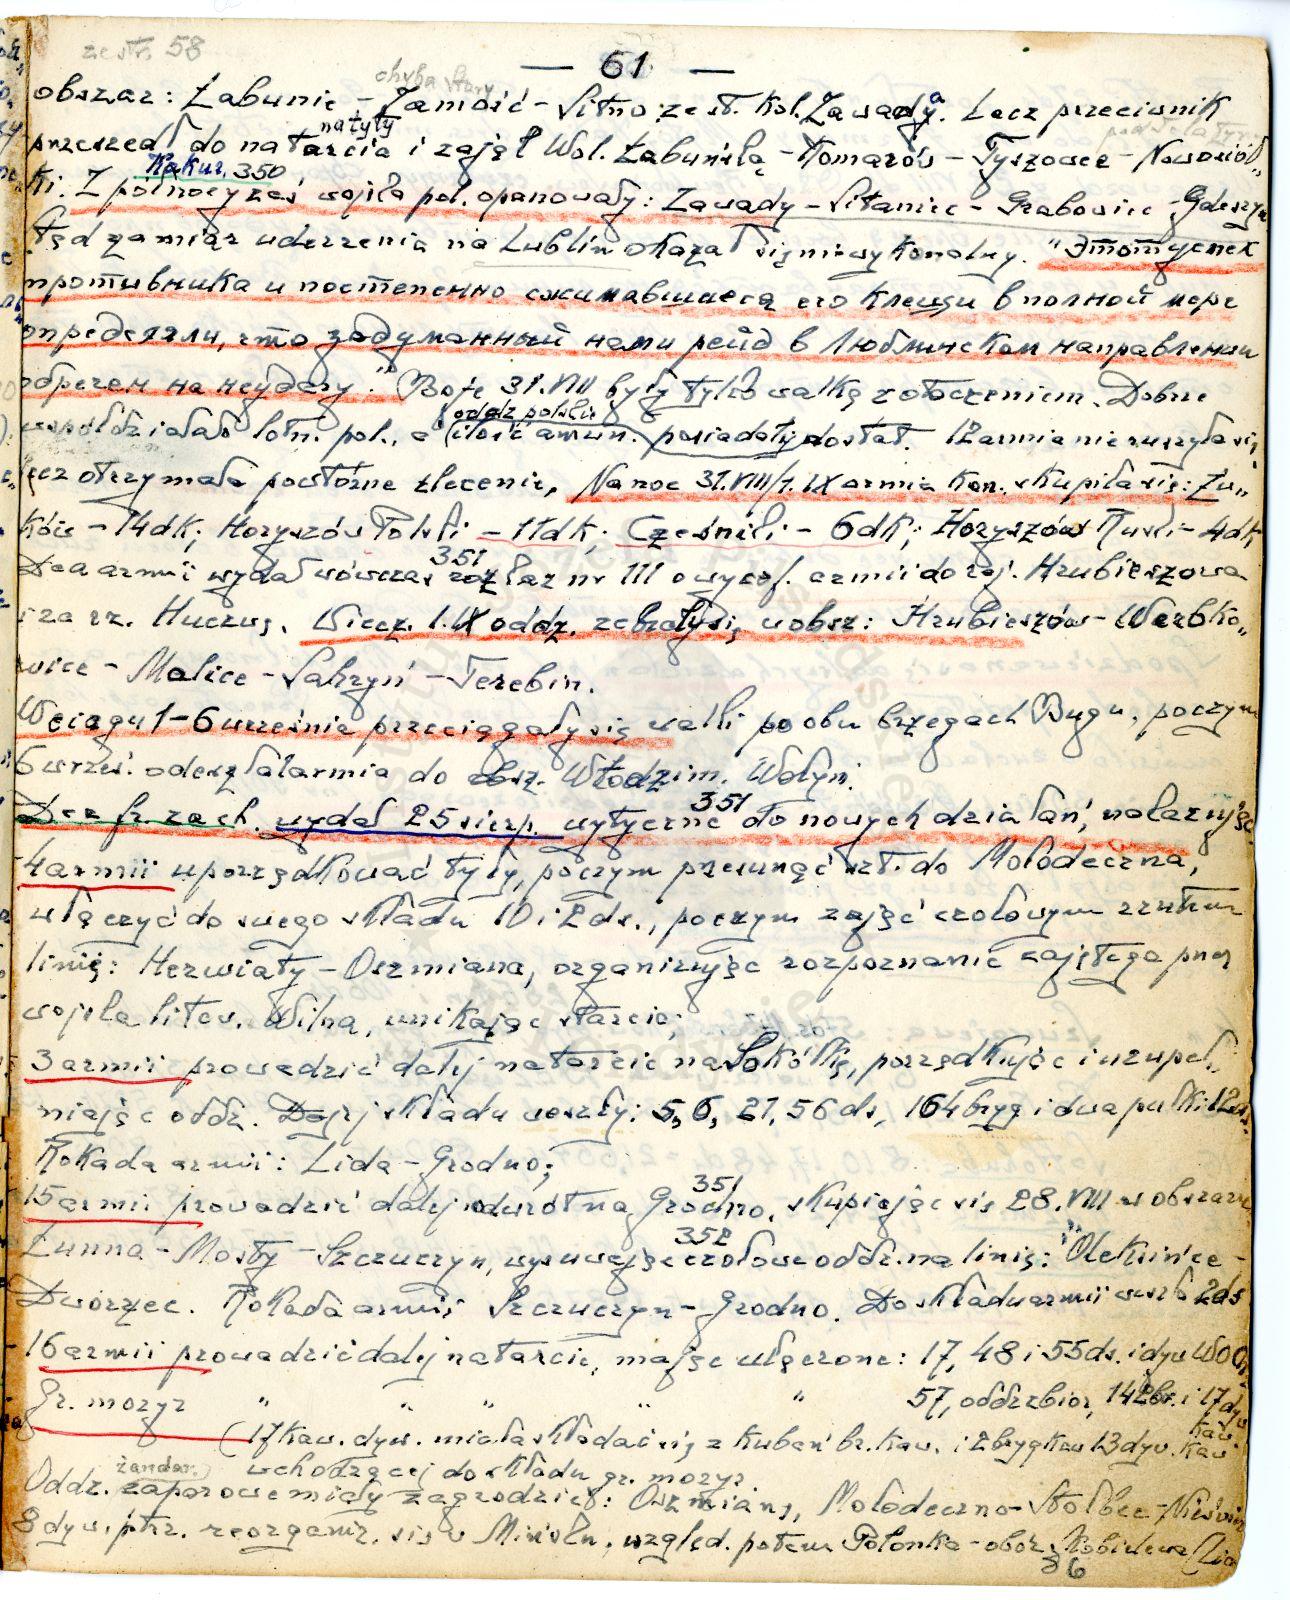 ze str. 58
— 61 —
chyba stary
obszar: Łabunie – Zamość – Sitno ze st. kol. Zawada. Lecz przeciwnik
na tyły
przeszedł do natarcia i zajął Wol. Łabuńską – Komarów – Tyszowce – Nowosiół„
Kakur. 350
ki. Z północy zaś wojska pol. opanowały: Zawady – Sitaniec – Grabowiec – Gdeszyn
Stąd zamiar uderzenia na Lublin okazał się niewykonalny. "Этот успех
противника и постепенно сжимавшиеся его клещи в полной мере
определяли, что задуманный нами рейд в Люблинском направлении
обречен на неудачу." Boje 31.VIII były tylko walką z otoczeniem. Dobrze
oddz polskie
współdziałało lotn. pol., a ilość amun. posiadały dostat. 12 armia nie ruszyła się,
lecz otrzymała powtórne zlecenie. Na noc 31.VIII/1.IX armia kon. skupiła się: Żu„
ków – 14dk; Horyszów Polski – 11dk; Cześniki – 6dk; Horyszów Ruski – 4dk
351
Dca armii wydał wówczas rozkaz nr III o wycof. armii do rej. Hrubieszowa
za rz. Huczwę. Wiecz. 1.IX oddz. zebrały się w obsz: Hrubieszów – Werbko„
wice – Malice – Sahryń – Terebin.
W ciągu 1–6 września przeciągały się walki po obu brzegach Bugu, poczym
6 wrześ. odeszła armia do obsz. Włodzim. Wołyń.
351
Dca fr. zach. wydał 25 sierp. wytyczne do nowych działań, nakazując
4 armii uporządkować tyły, poczym przesunąć szt. do Mołodeczna,
włączyć do swego składu 10 i 2 ds., poczym zająć czołowym rzutem
linię: Herwiaty – Oszmiana, organizując rozpoznanie zajętego przez
wojska litew. Wilna, unikając starcia;
3 armii prowadzić dalej natarcie na Sokółkę, porządkując i uzupeł„
niając oddz. Do jej składu weszły: 5, 6, 21, 56 ds, 164 bryg i dwa pułki
Rokada armii: Lida – Grodno;
351
15 armii prowadzić dalej odwrót na Grodno, skupiając się 28.VIII w obszarze
352
Łunna – Mosty – Szczuczyn, wysuwając czołowe oddz. na linię: Olekszińce –
Dworzec. Rokada armii Szczuczyn – Grodno. Do składu armii weszła 2ds
16 armii prowadzić dalej natarcie, mając włączone: 17, 48 i 55ds. i dyw WO
Gr. mozyr " " " " " 57, oddz zbior, 142br. i 17 dyw
kaw.
(17 kaw. dyw. miała składać się z kubań br. kaw. i 2 bryg kaw 13 dyw. kaw
wchodzącej do składu gr. mozyr
żandar.)
Oddz. zaporowe miały zagrodzić: Oszmianę, Mołodeczno – Stołbce – Nieśwież
8 dyw. strz. reorganiz. się w Mińsku, względ. potem Połonka – obóz Kobidewa
86